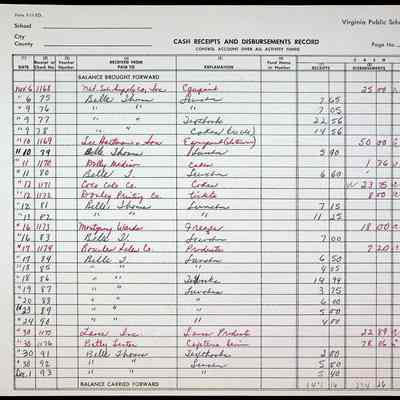 Form FIIED.
School
City
County
Virginia Public Scho
CASH RECEIPTS AND DISBURSEMENTS RECORD
CONTROL ACCOUNT OVER ALL ACTIVITY FUNDS
Page No.
(1) (2) (3) (4) (5) (6) (7) CASH (8)
DATE Receipt or Check No. Voucher Number RECEIVED FROM PAID TO EXPLANATION Fund Name or Number RECEIPTS DISBURSEMENTS
BALANCE BROUGHT FORWARD
Nov 6 1168 Nat. Sch. Supply Co., Inc. Equipment 25 00
" 6 75 Belle Thomas Lunches 7 65
" 9 76 " " " 7 05
" 9 77 " " Textbooks 22 56
" 9 78 " " Cokes 14 56
" 10 1169 Lee Hartman & Sons Equipment 50 00
" 10 79 Belle Thomas Lunches 5 90
" 11 1170 Dolly Madison Cakes 1 76
" 11 80 Belle T. Lunches 6 60
" 12 1171 Coca Cola Co. Cokes 23 75
" 12 1172 Printing Co. Tickets 8 00
" 12 81 Belle Thomas Lunches 7 15
" 12 82 " " " 11 25
" 16 1173 Montgomery Wards Freezer 18 00
" 16 83 Belle T. Lunches 7 00
" 17 1174 Sales Co. Products 7 20
" 17 84 Belle T. Lunches 6 50
" 18 85 " " " 4 05
" 18 86 " " Textbooks 14 94
" 19 87 " " Lunches 3 75
" 20 88 " " " 6 00
" 23 89 " " " 5 00
" 24 90 " " " 4 00
" 30 1175 Lance Inc. Lance Products 22 89
" 30 1176 Betty Lester Cafeteria 78 06
" 30 91 Belle Thomas Textbooks 2 00
" 30 92 " " Lunches 5 50
Dec. 1 93 " " " 5 40
BALANCE CARRIED FORWARD